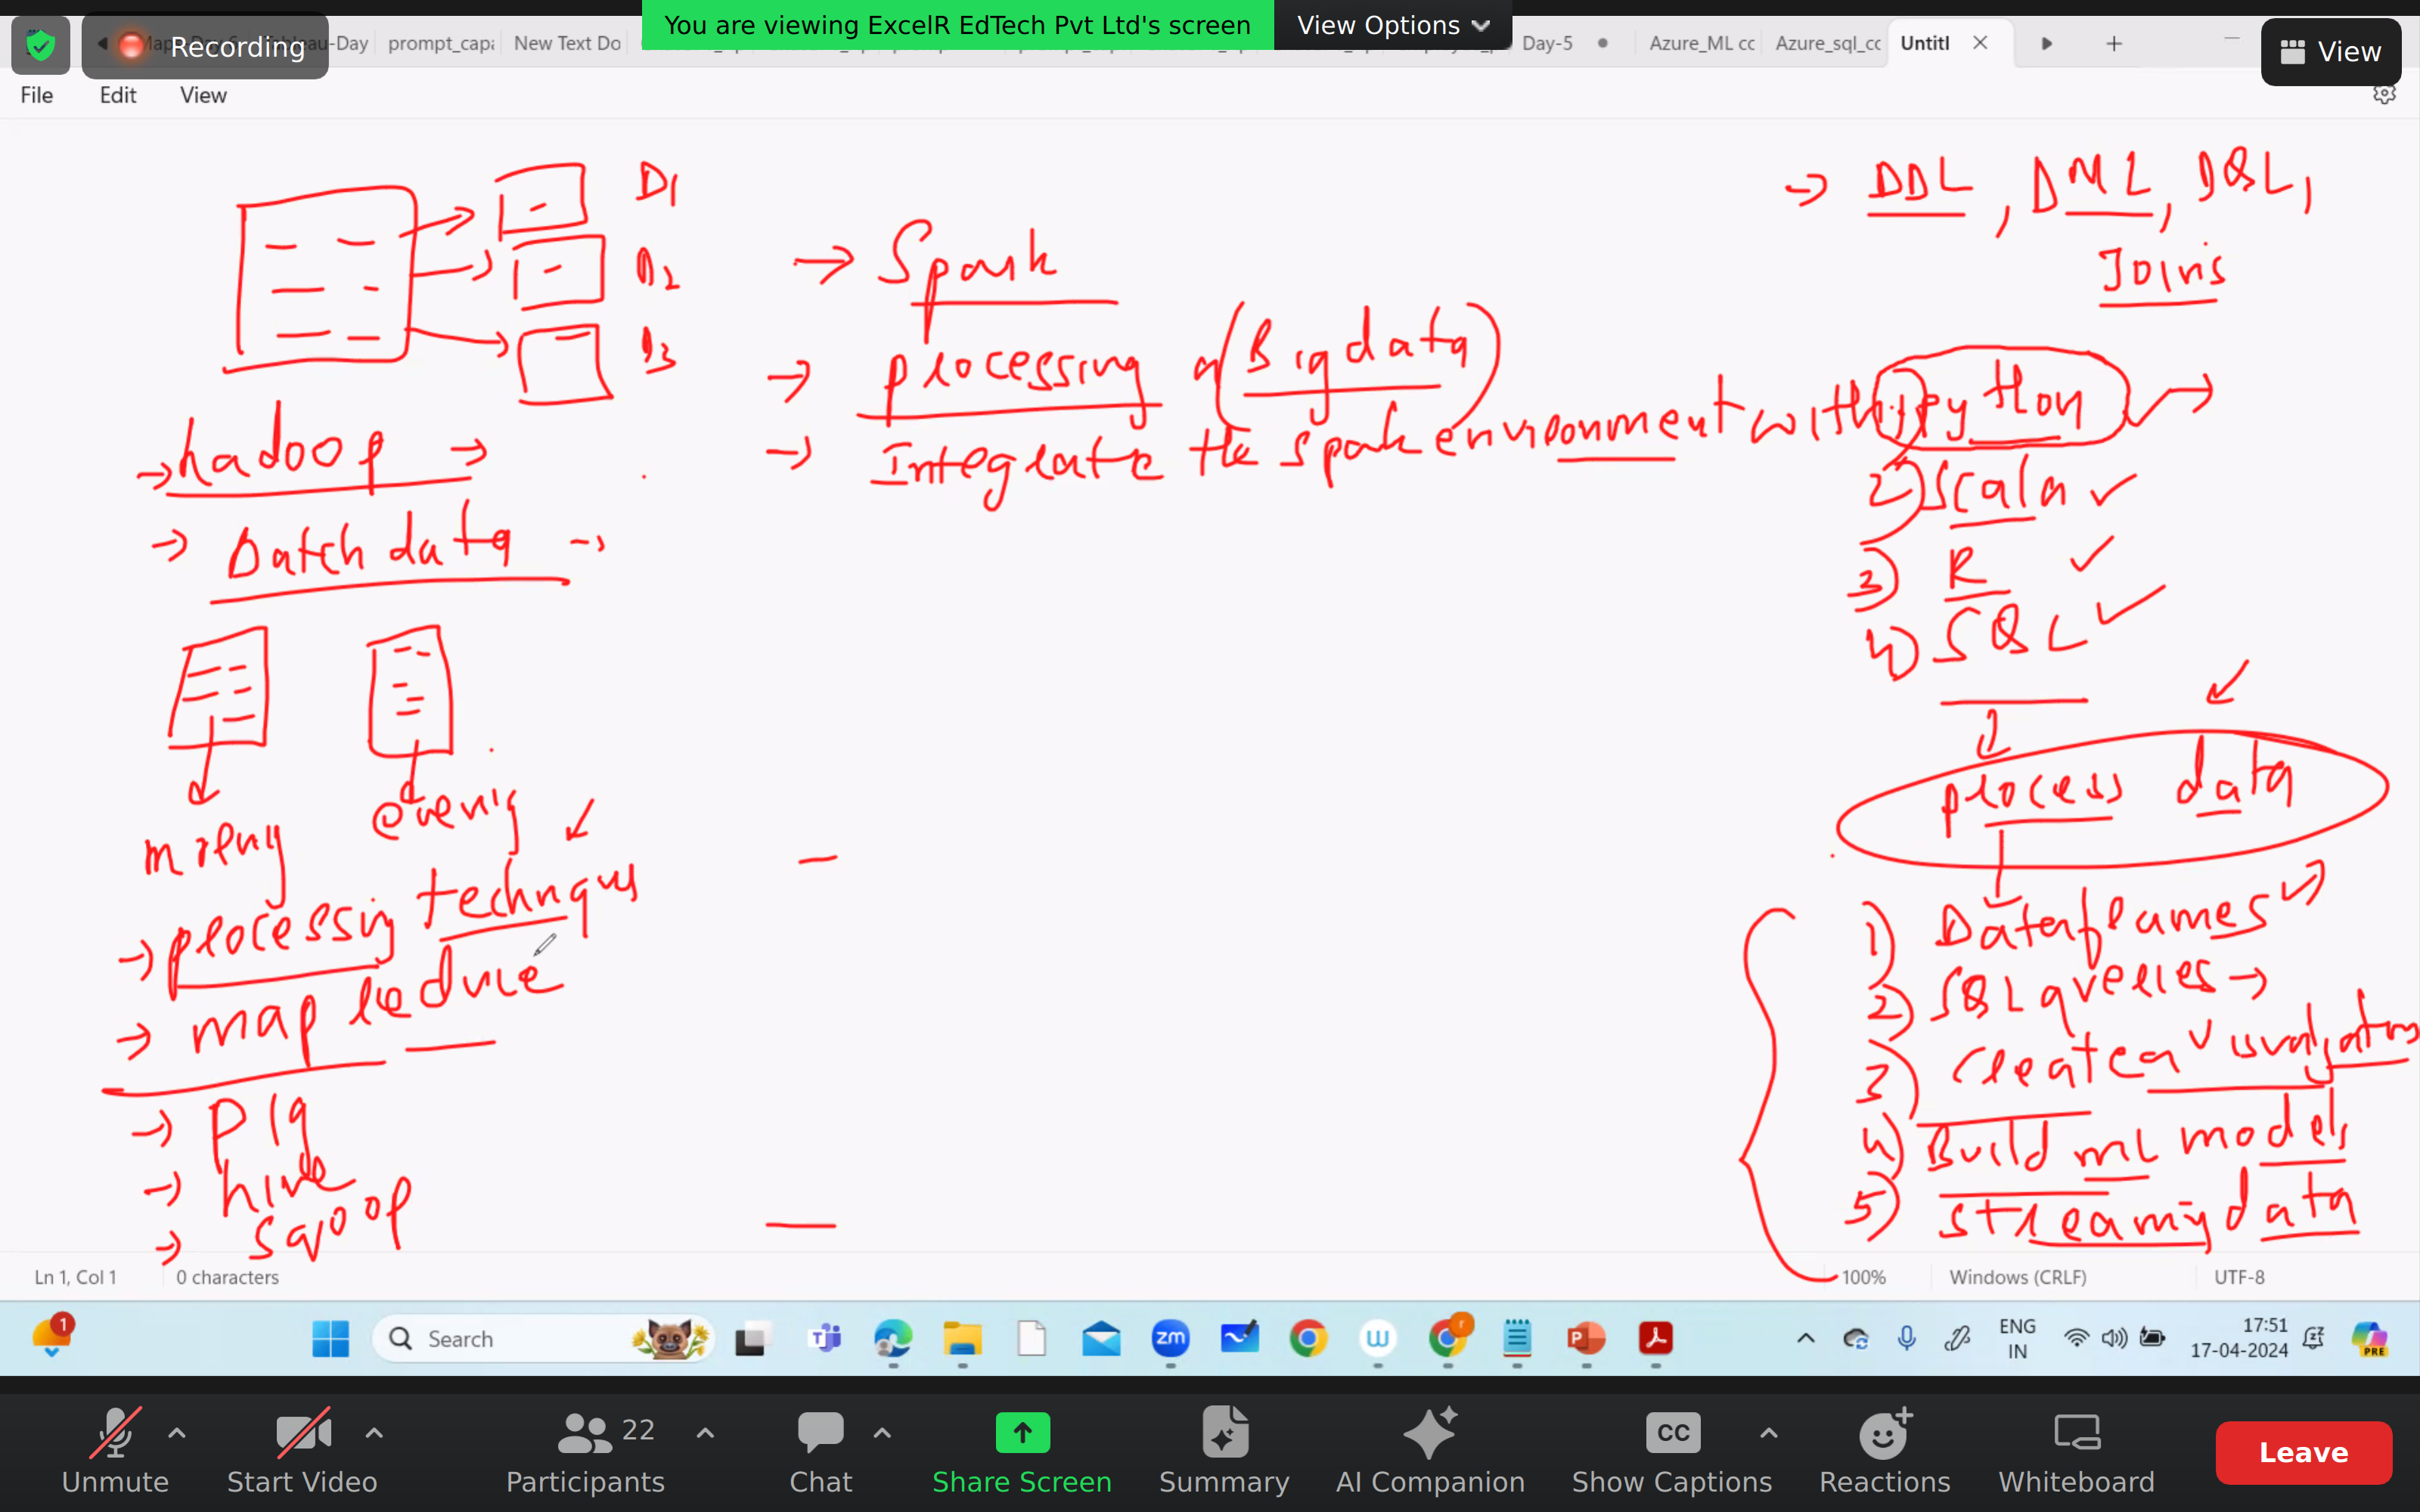 You are viewing ExcelR EdTech Pvt Ltd's screen
View Options
Recording
prompt_capa
New Text Do
Day-5
Azure_ML cc
Azure_sql_cc
Untitl
View
File
Edit
View
D1
D2
D3
→ hadoop →
→ Batch data →
evenig
→ processing techniqus
→ map reduce
→ pig
→ hive
→ sqoop
→ Spark
→ processing of (Big data)
→ Integrate the Spark environment with 1) python
2) Scala
3) R
4) SQL
→ DDL, DML, DQL,
Joins
process data
1) Dataframes
2) SQL queries →
3) Create a visualizations
4) Build ML models
5) streaming data
Ln 1, Col 1
0 characters
100%
Windows (CRLF)
UTF-8
1
Search
ENG
IN
17:51
17-04-2024
PRE
Unmute
Start Video
22
Participants
Chat
Share Screen
Summary
AI Companion
CC
Show Captions
Reactions
Whiteboard
Leave